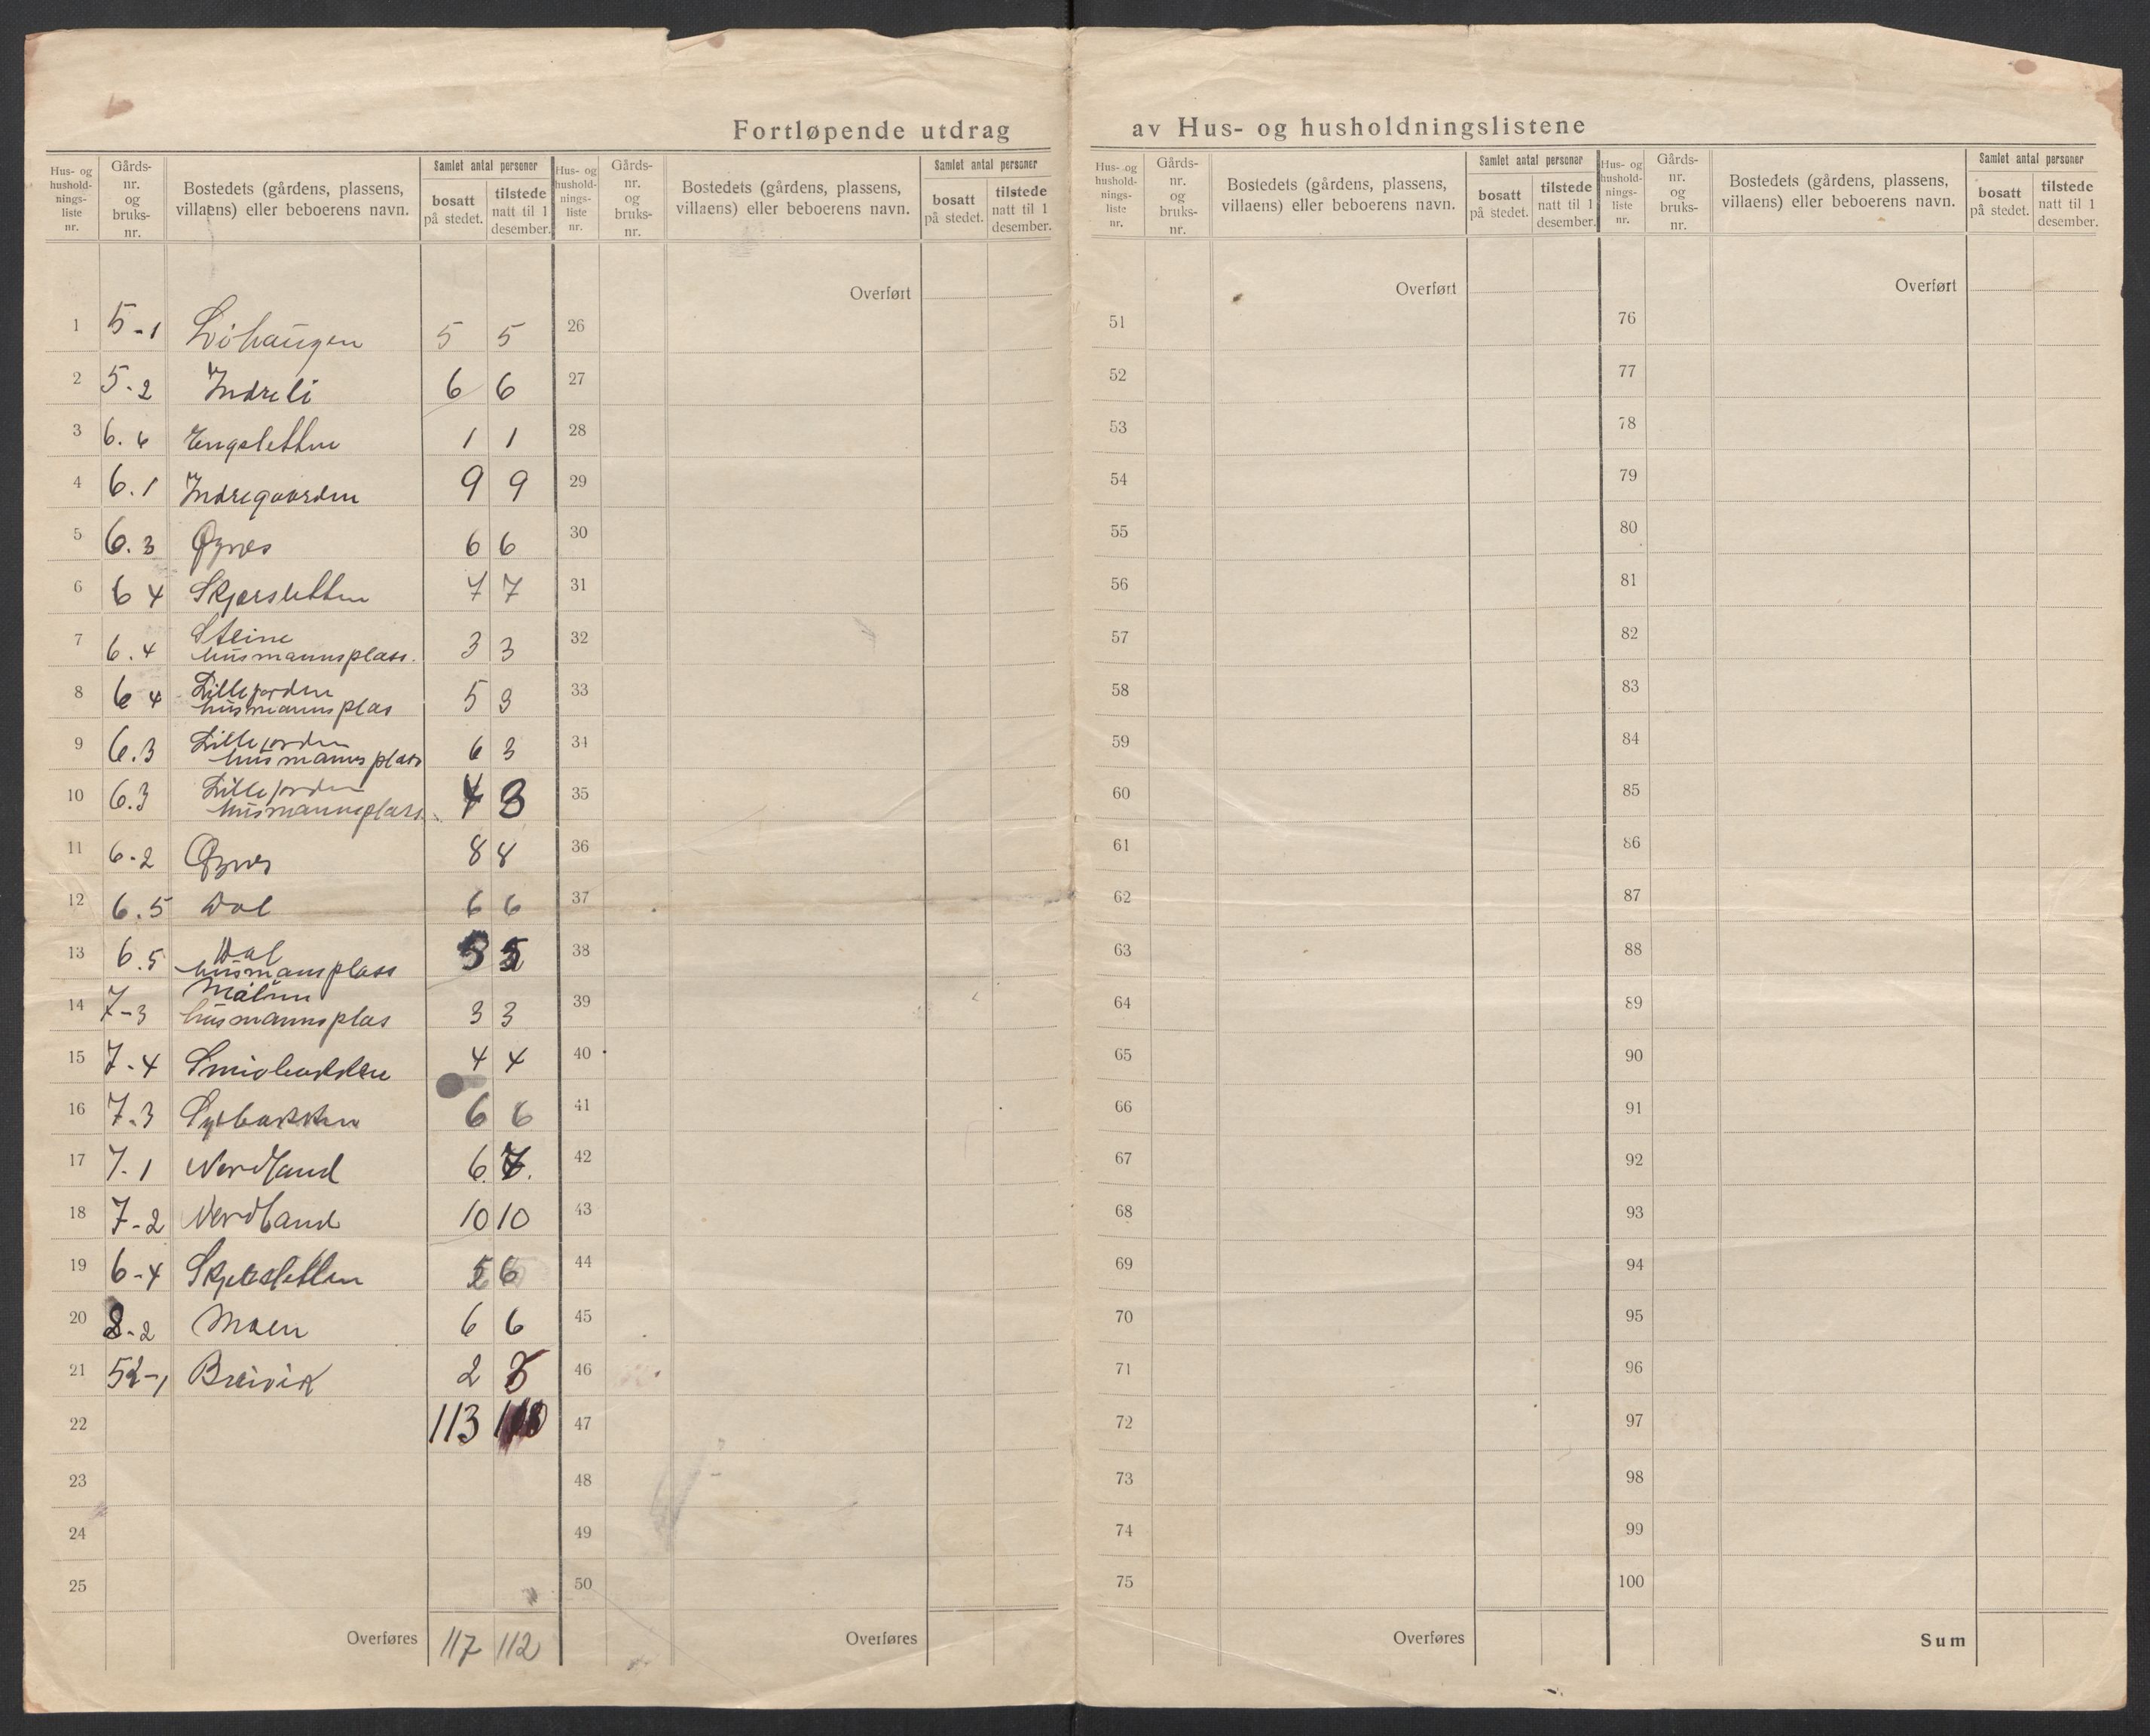 Fortløpende utdrag av Hus- og husholdningslistene
Hus- og hushold-nings-liste nr. Gårds-nr. og bruks-nr. Bostedets (gårdens, plassens, villaens) eller beboerens navn. Samlet antal personer bosatt på stedet. tilstede natt til 1 desember.
Hus- og hushold-nings-liste nr. Gårds-nr. og bruks-nr. Bostedets (gårdens, plassens, villaens) eller beboerens navn. Samlet antal personer bosatt på stedet. tilstede natt til 1 desember.
Hus- og hushold-nings-liste nr. Gårds-nr. og bruks-nr. Bostedets (gårdens, plassens, villaens) eller beboerens navn. Samlet antal personer bosatt på stedet. tilstede natt til 1 desember.
Hus- og hushold-nings-liste nr. Gårds-nr. og bruks-nr. Bostedets (gårdens, plassens, villaens) eller beboerens navn. Samlet antal personer bosatt på stedet. tilstede natt til 1 desember.
1 5-1 5 5
2 5.2 Indreli 6 6
3 6.6 Engsletten 1 1
4 6.1 Indregaarden 9 9
5 6.3 Øynes 6 6
6 6 4 Skjærsletten 7 7
7 6.4 Steine
husmannsplass. 3 3
8 6 4 Lillejorden
husmannsplas 5 3
9 6.3 Lillejorden
husmannsplass 6 3
10 6.3 Lillejorden
husmannsplass 4 3
11 6.2 Øynes 8 8
12 6.5 Dal 6 6
13 6.5 Dal
husmansplass 5
14 7-3
husmannsplas 3 3
15 7.4 Smiobakken 4 4
16 7.3 6 6
17 7.1 Nordland 6. 7.
18 7-2 Nordland 10 10
19 6-4 5 6
20 8-2 Moen 6 6
21 52-1 Breivik 2
22 113
23
24
25
Overføres 117 112
Overført
26
27
28
29
30
31
32
33
34
35
36
37
38
39
40
41
42
43
44
45
46
47
48
49
50
Overføres
Overført
51
52
53
54
55
56
57
58
59
60
61
62
63
64
65
66
67
68
69
70
71
72
73
74
75
Overføres
Overført
76
77
78
79
80
81
82
83
84
85
86
87
88
89
90
91
92
93
94
95
96
97
98
99
100
Sum